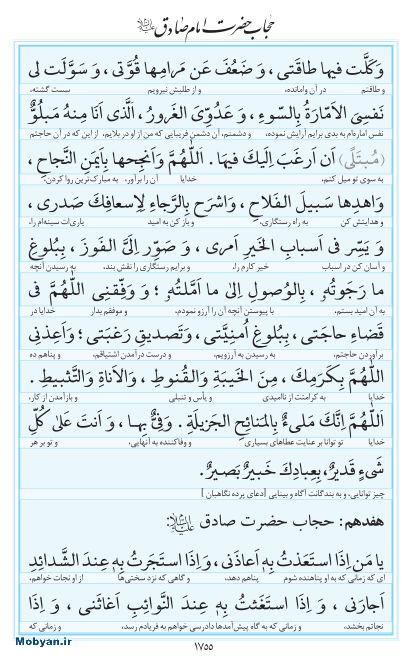 حجاب حضرت امام صادق علیه‌السلام
وَكَلَّت فيها طاقَتى ، وَ ضَعُفَ عَن مَرامِها قُوَّتى ، وَ سَوَّلَت لى
و طاقتم در آن وامانده، و از طلبش نیرویم سست گشته،
نَفسِىَ الاَمّارَةُ بِالسّوءِ ، وَ عَدُوِّىَ الغَرورُ ، اَلَّذى اَنَا مِنهُ مَبلُوٌّ
نفس اماره‌ام به بدی برایم آرایش نموده، و دشمنم، آن دشمن فریبایی که من از او در بلایم. از این که در آن حاجتم
(مُبتَلًى) اَن اَرغَبَ اِلَيكَ فيها . اَللّٰهُمَّ وَاَنجِحها بِاَيمَنِ النَّجاحِ ،
به سوی تو میل کنم، خدایا آن را برآور، به مبارک‌ترین روا کردن،
وَاهدِها سَبيلَ الفَلاحِ ، وَاشرَح بِالرَّجاءِ لِاِسعافِكَ صَدرى ،
و هدایتش کن به راه رستگاری، و باز کن به امید یاری‌ات سینه‌ام را،
وَ يَسِّر فى اَسبابِ الخَيرِ اَمرى ، وَ صَوِّر اِلَىَّ الفَوزَ ، بِبُلوغِ
و آسان کن در اسباب خیر کارم را، و برایم رستگاری را نقش بند، به رسیدن آنچه
ما رَجَوتُهُ ، بِالوُصولِ اِلىٰ ما اَمَّلتُهُ ؛ وَ وَفِّقنِى اللّٰهُمَّ فى
به آن امید بستم، با پیوستن آنچه آن را آرزو نمودم، و موفقم بدار خدایا در
قَضاءِ حاجَتى ، بِبُلوغِ اُمنِيَّتى ، وَتَصديقِ رَغبَتى ؛ وَاَعِذنى
برآوردن حاجتم، به رسیدن به آرزویم، و درست درآمدن اشتیاقم، و پناهم ده
اللّٰهُمَّ بِكَرَمِكَ ، مِنَ الخَيبَةِ وَالقُنوطِ ، وَالاَناةِ وَالتَّثبيطِ .
خدایا به کرامتت از ناامیدی و یأس و تنبلی و بازآمدن از کار،
اَللّٰهُمَّ اِنَّكَ مَلىءٌ بِالمَنائِحِ الجَزيلَةِ . وَفِىٌّ بِها ، وَ اَنتَ عَلىٰ كُلِّ
خدایا تو توانا بر عنایت عطاهای بسیاری و وفاکننده به آنهایی، و تو بر هر
شَىءٍ قَديرٌ، بِعِبادِكَ خَبيرٌ بَصيرٌ.
چیز توانایی، و به بندگانت آگاه و بینایی [دعای پرده نگاهبان]
هفدهم: حجاب حضرت صادق علیه‌السلام:
يا مَن اِذَا استَعَذتُ بِهِ اَعاذَنى ، وَاِذَا استَجَرتُ بِهِ عِندَ الشَّدائِدِ
ای که زمانی که به او پناهنده شوم پناهم دهد، و گاهی که نزد سختی‌ها از او نجات خواهم،
اَجارَنى ، وَ اِذَا استَغَثتُ بِهِ عِندَ النَّوائِبِ اَغاثَنى ، وَ اِذَا
نجاتم بخشد، و زمانی که به گاه پیش‌آمدها دادرسی خواهم به فریادم رسد، و زمانی که
Mobyan.ir
۱۷۵۵